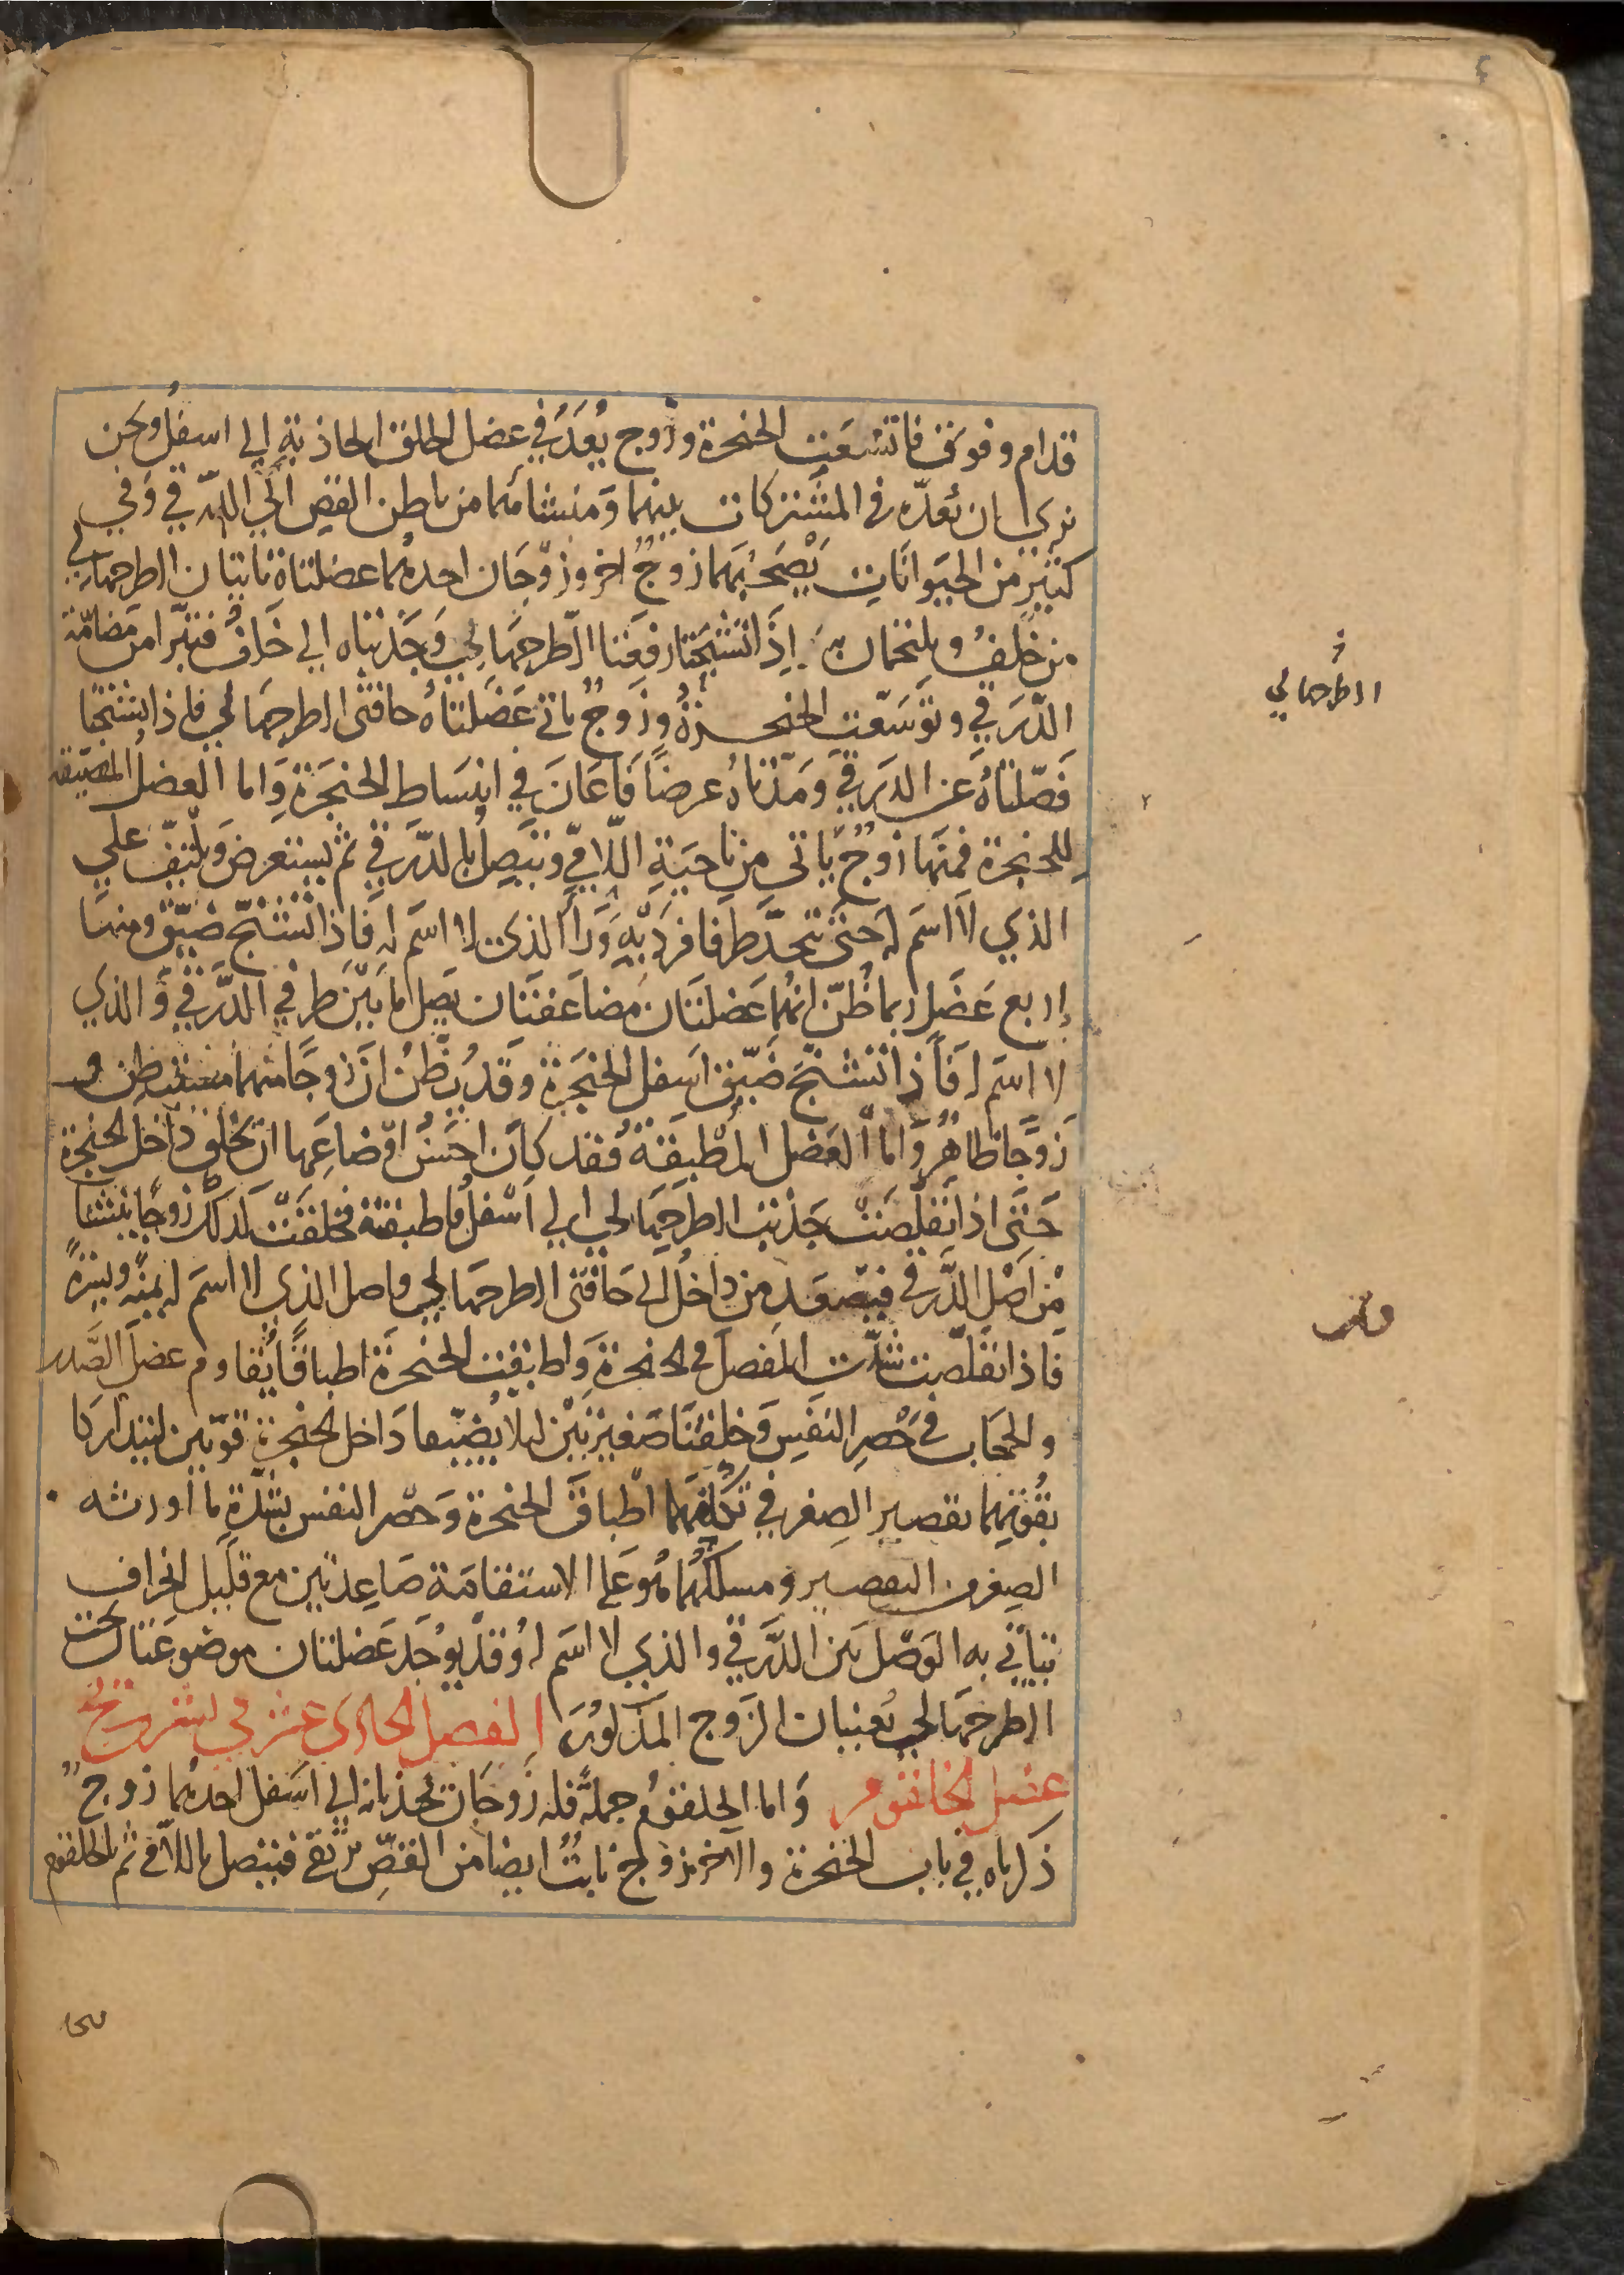 قدام وفوق فاتسعت الحنجرة وزوج يُعَدُّ في عضل الحلق الجاذبة الي اسفل ونحن
نرى ان نعدّه في المشتركات بينهما ومنشاهما من باطن القص الي الدرقي وفي
كثير من الحيوانات يصحبهما زوج اخر وزوجان احدهما عضلتاه تاتيان الطرجهالي
من خلف ويلتحمان به اذا تشنجتا رفعتا الطرجهالي وجذبتاه الي خلف فتبرا من مضامّة
الدّرقي وتوسّعت الحنجرة وزوج تاتي عضلتاه حافتي الطرجهالي فاذا تشنجتا
فصّلتاه عن الدرقي ومدّتاه عرضا فاعان في انبساط الحنجرة واما العضل المضيّقة
للحنجرة فمنها زوج ياتي من ناحية اللامي ويتصل بالدرقي ثم يستعرض ويلتفّ علي
الذي لا اسم له حتى يتحد طرفا فرديه ورا الذي لا اسم له فاذا تشنج ضيّق ومنها
اربع عضل ربما ظنّ انهما عضلتان مضاعفتان يصل ما بين طرفي الدرقي والذي
لا اسم له فاذا تشنج ضيّق اسفل الحنجرة وقد يظن ان زوجا منهما مستبطن و
زوجا ظاهر واما العضل المطبقة فقد كان احسن اوضاعها ان يخلق داخل الحنجرة
حتى اذا تقلصت جذبت الطرجهالي الي اسفل فاطبقته فخلقت لذلك زوجا ينشا
من اصل الدرقي فيصعد من داخل الي حافتي الطرجهالي واصل الذي لا اسم له يمنه ويسرة
فاذا تقلصت شدّت المفصل والحنجرة واطبقت الحنجرة اطباقا يُقاوم عضل الصَّدر
والحجاب في حَصر النفس وخلقتا صغيرتين لئلا يضيقا داخل الحنجرة قويتين ليتداركا
بقوتهما تقصير الصغر في تكلفهما اطباق الحنجرة وحصر النفس بشدّة ما اورثه
الصغر من التقصير ومسلكهما هو على الاستقامة صاعدتين مع قليل انحراف
يتأتى به الوصل بين الدرقي والذي لا اسم له وقد يوجد عضلتان موضوعتان تحت
الطرجهالي تعينان الزوج المذكور الفصل الحادى عشر في تشريح
عضل الحلقوم واما الحلقوم جملة فله زوجان يجذبانه الي اسفل احدهما زوج
ذكرناه في باب الحنجرة والاخر زوج نابت ايضا من القصّ يرتقي فيتصل باللامي ثم بالحلقوم
الطرجهالي